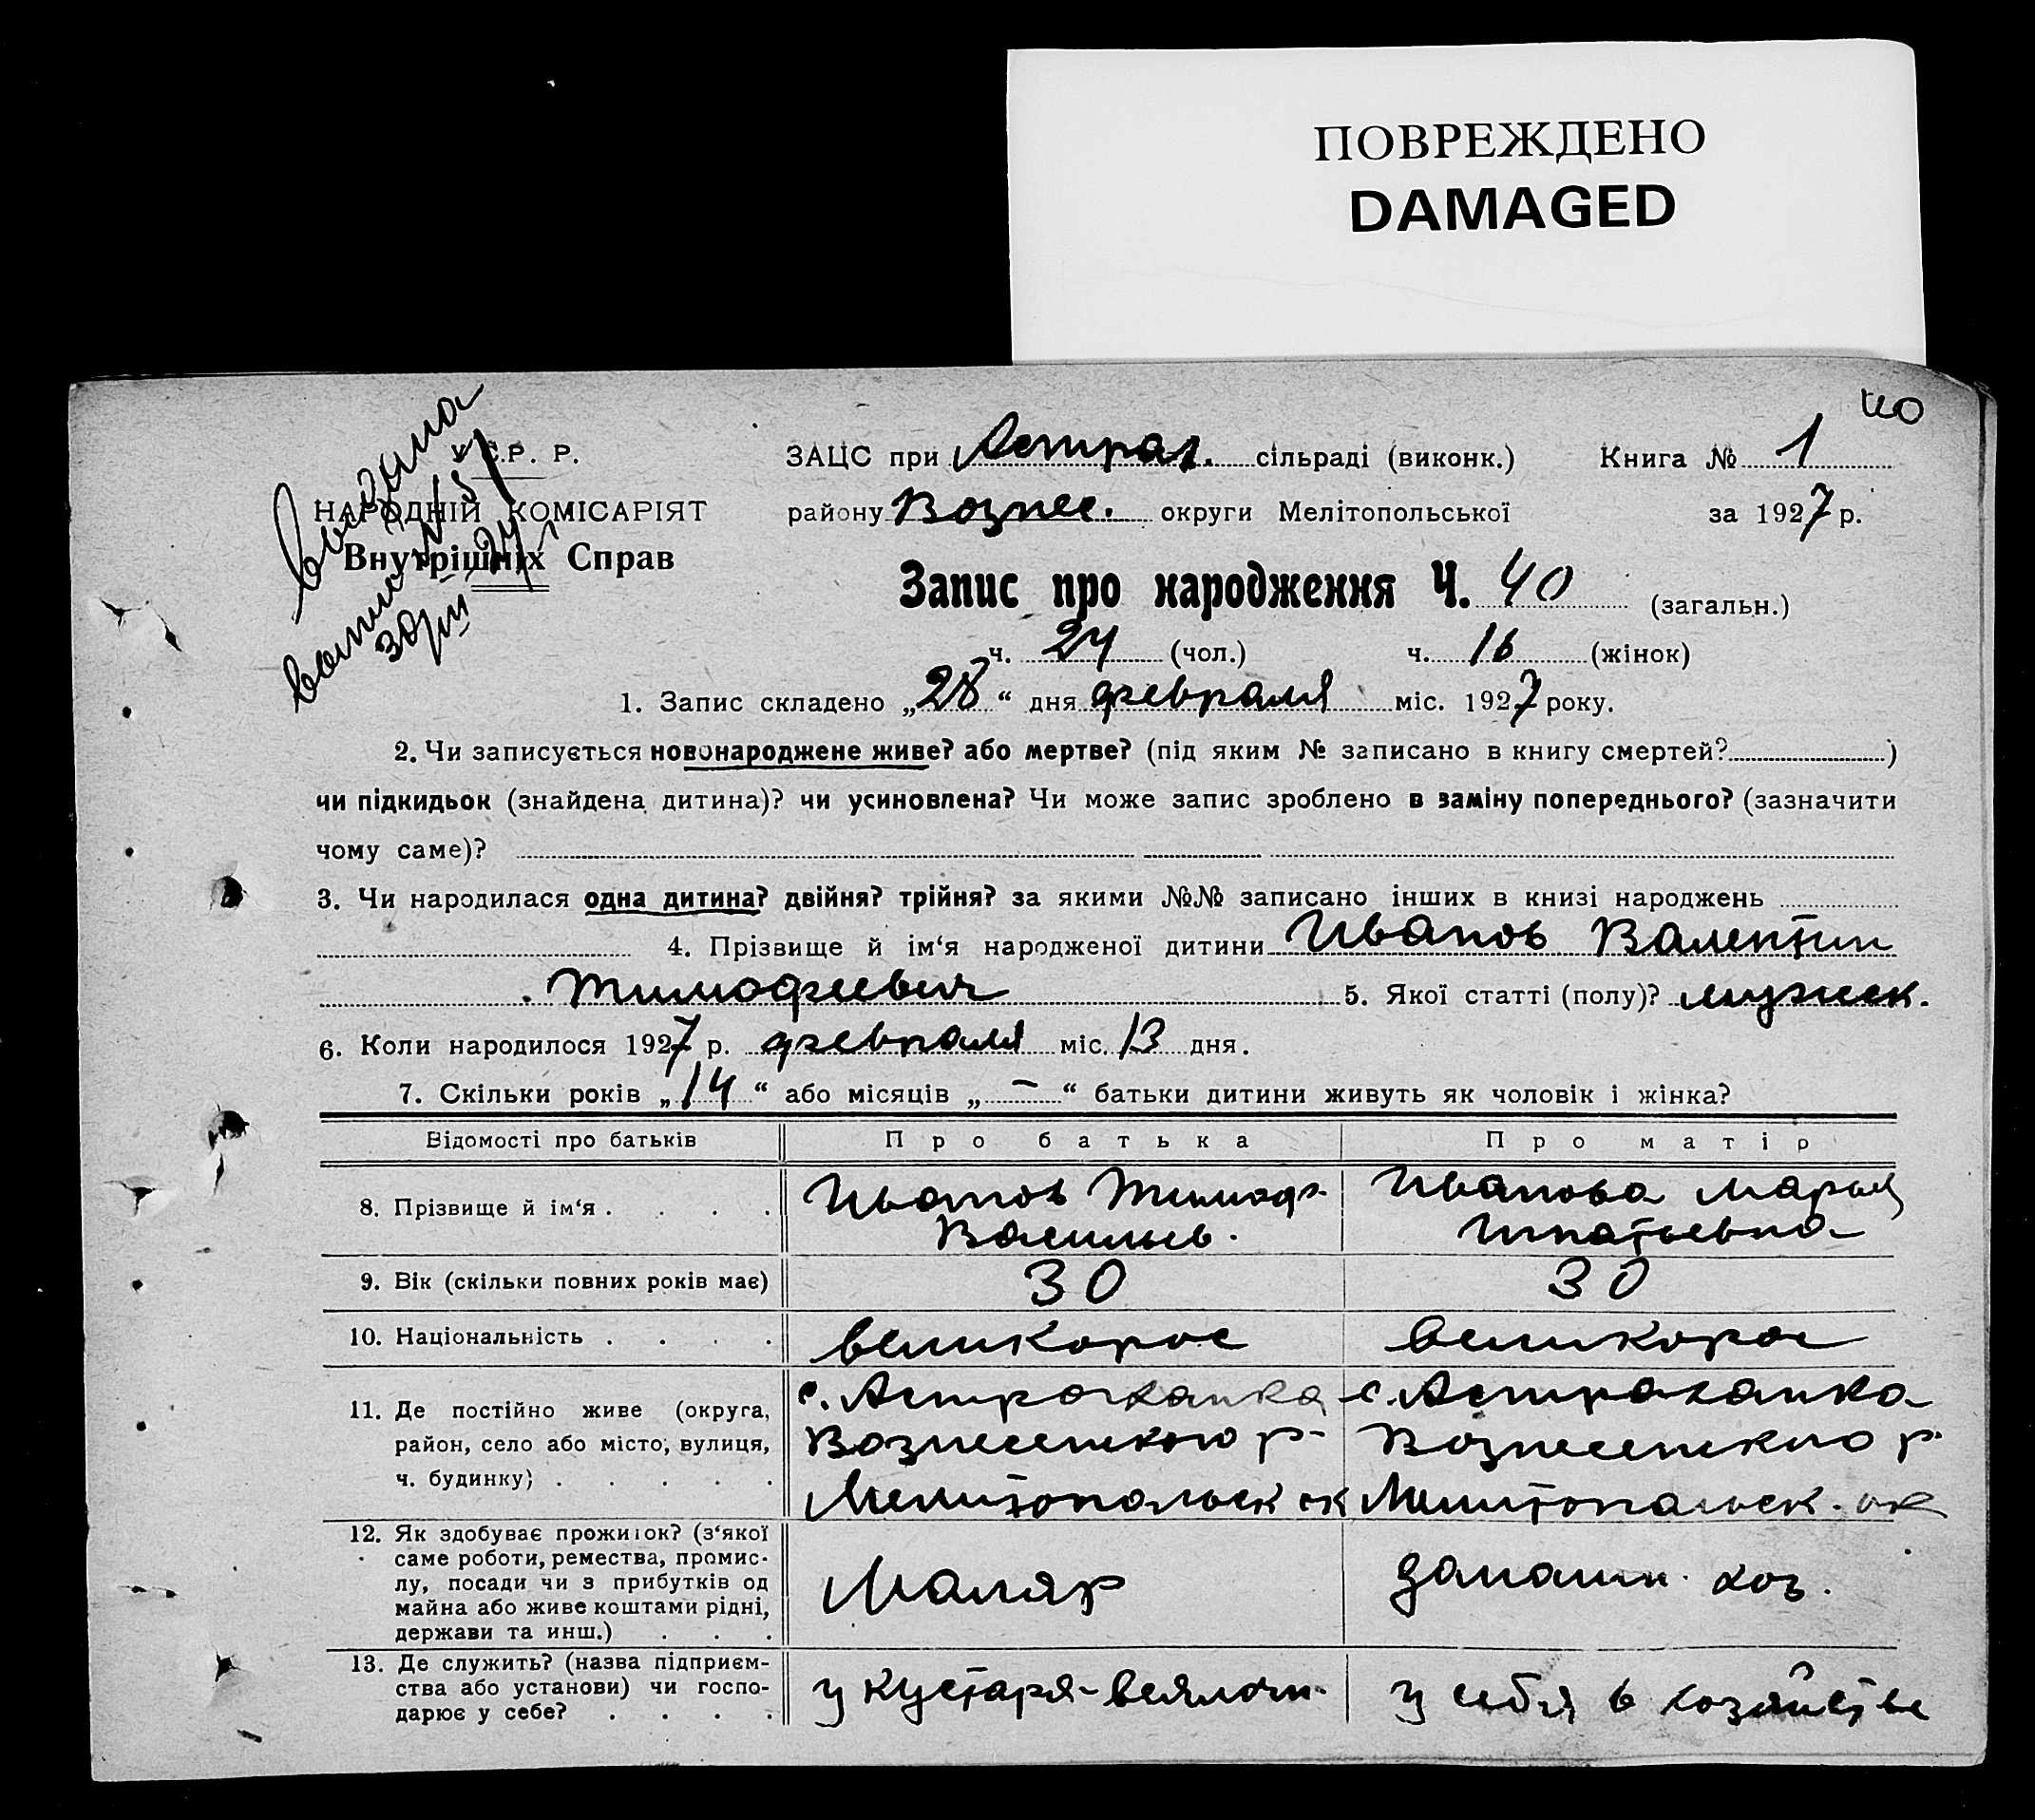 ПОВРЕЖДЕНО
DAMAGED
40
У.С.Р. Р.
НАРОДНІЙ КОМІСАРІЯТ
Внутрішніх Справ
ЗАЦС при Астрах. сільраді (виконк.) Книга № 1
району Вознес. округи Мелітопольської за 1927 р.
Запис про народження Ч. 40 (загальн.)
ч. 24 (чол.) ч. 16 (жінок)
1. Запис складено „28“ дня февраля міс. 1927 року.
2. Чи записується новонароджене живе? або мертве? (під яким № записано в книгу смертей? )
чи підкидьок (знайдена дитина)? чи усиновлена? Чи може запис зроблено в заміну попереднього? (зазначити
чому саме)?
3. Чи народилася одна дитина? двійня? трійня? за якими №№ записано інших в книзі народжень
4. Прізвище й ім‘я народженої дитини Иванов Валентин
Тимофеевич 5. Якої статті (полу)? мужск.
6. Коли народилося 1927 р. февраля міс. 13 дня.
7. Скільки років „14“ або місяців „—“ батьки дитини живуть як чоловік і жінка?
Відомості про батьків Про батька Про матір
8. Прізвище й ім‘я . . . . Иванов Тимоф. Иванова Марья
Васильев. Игнатьевна
9. Вік (скільки повних років має) 30 30
10. Національність . . . . великорос великорос
11. Де постійно живе (округа, с. Астраханка с. Астраханка
район, село або місто, вулиця, Вознесенского р- Вознесенского р.
ч. будинку) . . . . . Мелитопольск ок Мелитопольск. ок
12. Як здобуває прожиток? (з‘якої
саме роботи, ремества, промис-
лу, посади чи з прибутків од Маляр домашн. хоз.
майна або живе коштами рідні,
держави та инш.) . . .
13. Де служить? (назва підприєм-
ства або установи) чи госпо- у кустаря-веялочн. у себя в хозяйстве
дарює у себе? . . . .